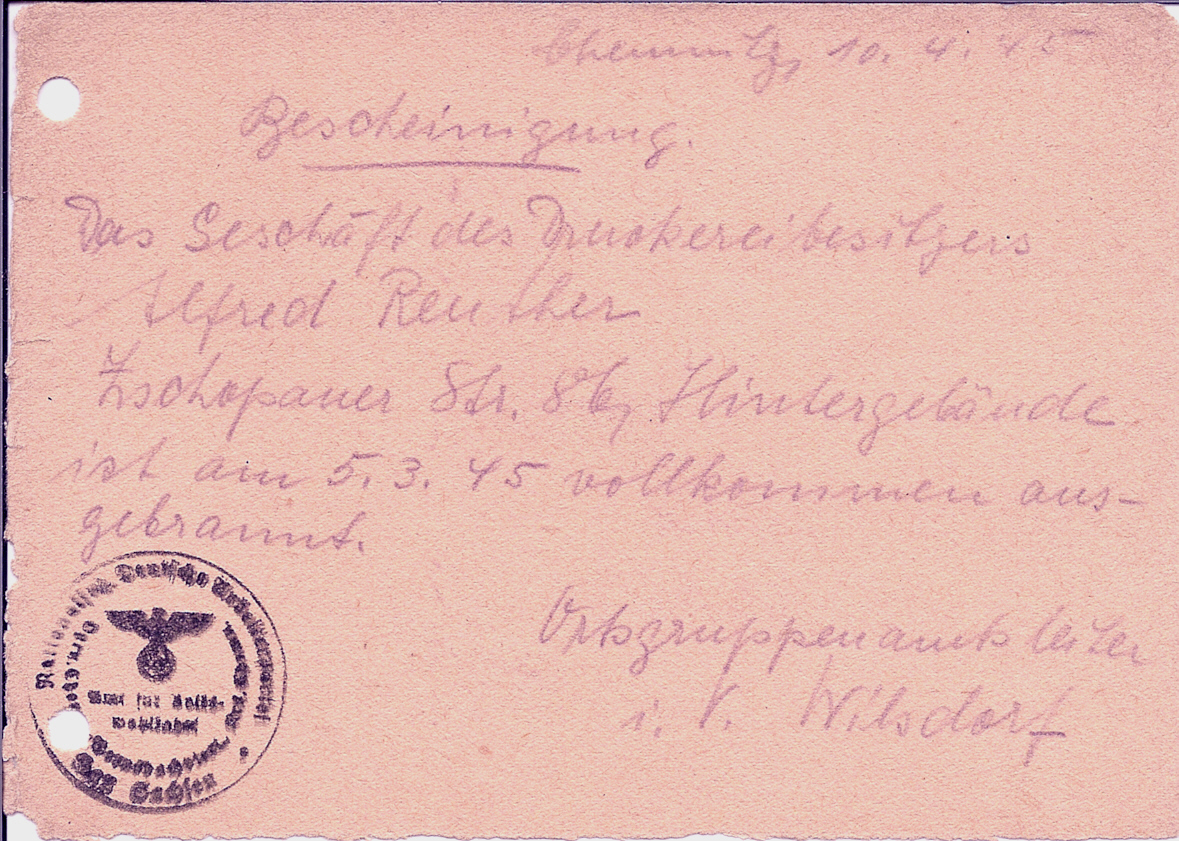 Chemnitz, 10. 4. 45
Bescheinigung.
Das Geschäft des Druckereibesitzers
Alfred Reuther
Zschopauer Str. 86, Hintergebäude
ist am 5. 3. 45 vollkommen aus-
gebrannt.
Ortsgruppenamtsleiter
i. V. Wilsdorf
Deutsche Arbeiterpartei
Amt für Volks-
wohlfahrt
Gau Sachsen